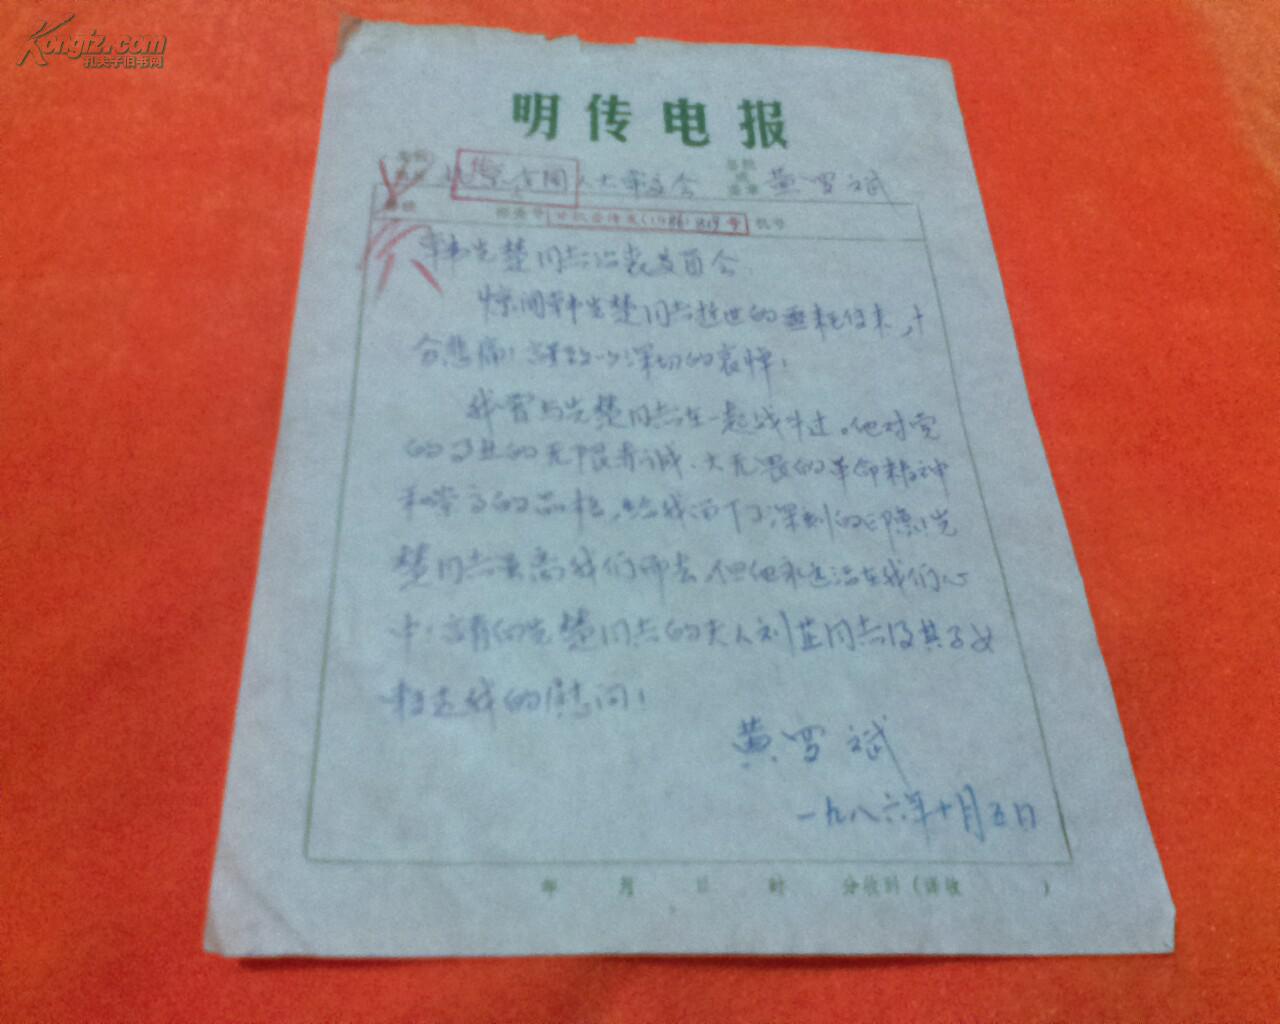 Kongfz.com
孔夫子旧书网
明传电报
人大常委会 黄罗斌
(1986) 819号 机号
韩先楚同志治丧委员会:
惊闻韩先楚同志逝世的噩耗传来,十
分悲痛!谨致以深切的哀悼!
我曾与先楚同志在一起战斗过。他对党
的事业的无限赤诚、大无畏的革命精神
和崇高的品格,给我留下了深刻的印象!先
楚同志虽离我们而去,但他永远活在我们心
中!请向先楚同志的夫人刘芷同志及其子女
转达我的慰问!
黄罗斌
一九八六年十月五日
年 月 日 时 分收到(译收 )